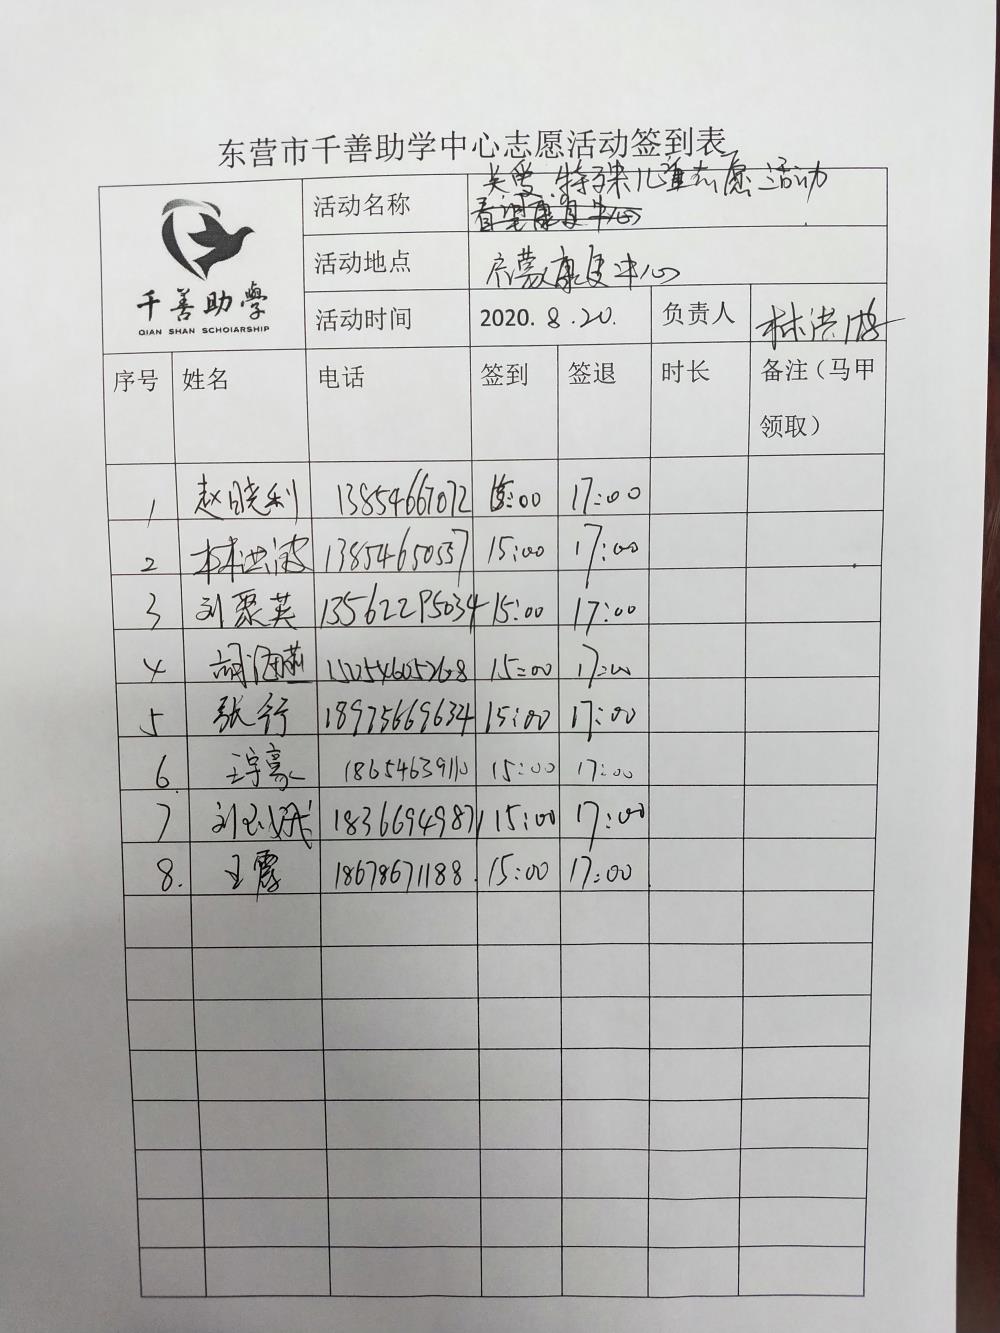 东营市千善助学中心志愿活动签到表
千善助學
QIAN SHAN SCHOIARSHIP
活动名称 关爱特殊儿童志愿活动
看望康复中心
活动地点 启蒙康复中心
活动时间 2020.8.20. 负责人 林洪波
序号 姓名 电话 签到 签退 时长 备注（马甲
领取）
1 赵晓利 13854667072 15:00 17:00
2 林洪波 13854650557 15:00 17:00
3 刘聚英 13562295034 15:00 17:00
4 胡海燕 15054605268 15:00 17:00
5 张行 18975669634 15:00 17:00
6. 王宇豪 18654639110 15:00 17:00
7 刘玉斌 18366949871 15:00 17:00
8. 王震 18678671188 15:00 17:00